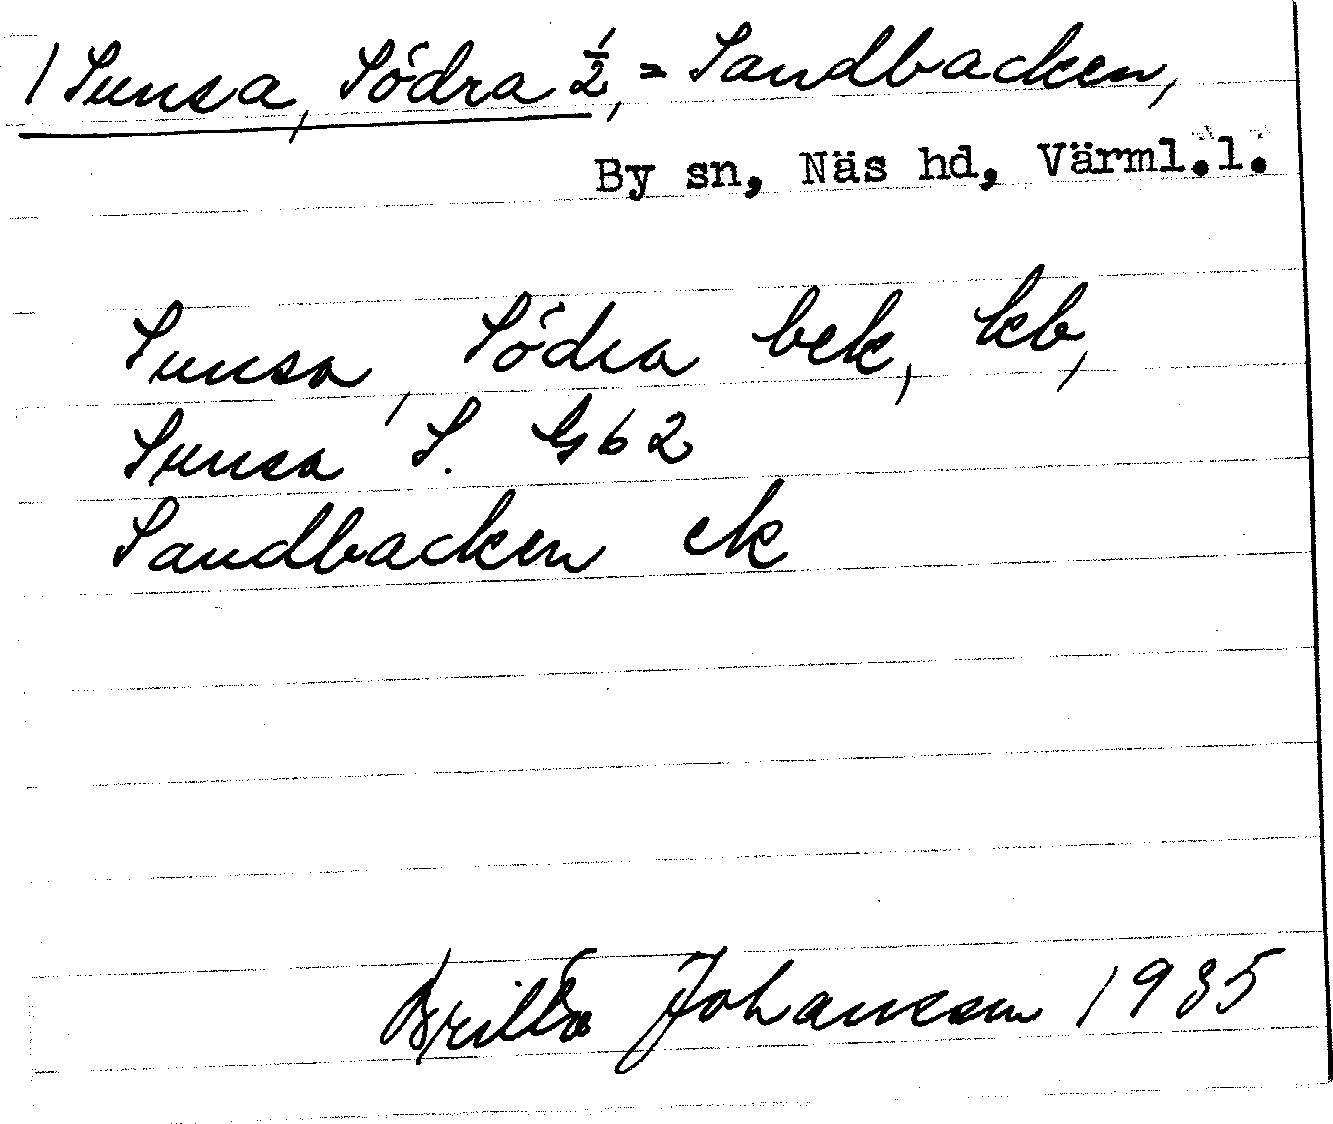 1 Sunsa, Södra ½, = Sandbacken,
By sn, Näs hd, Värml.l.
Sunsa, Södra bek, kb,
Sunsa S. Gb 2
Sandbacken ek
Britta Johansson 1935